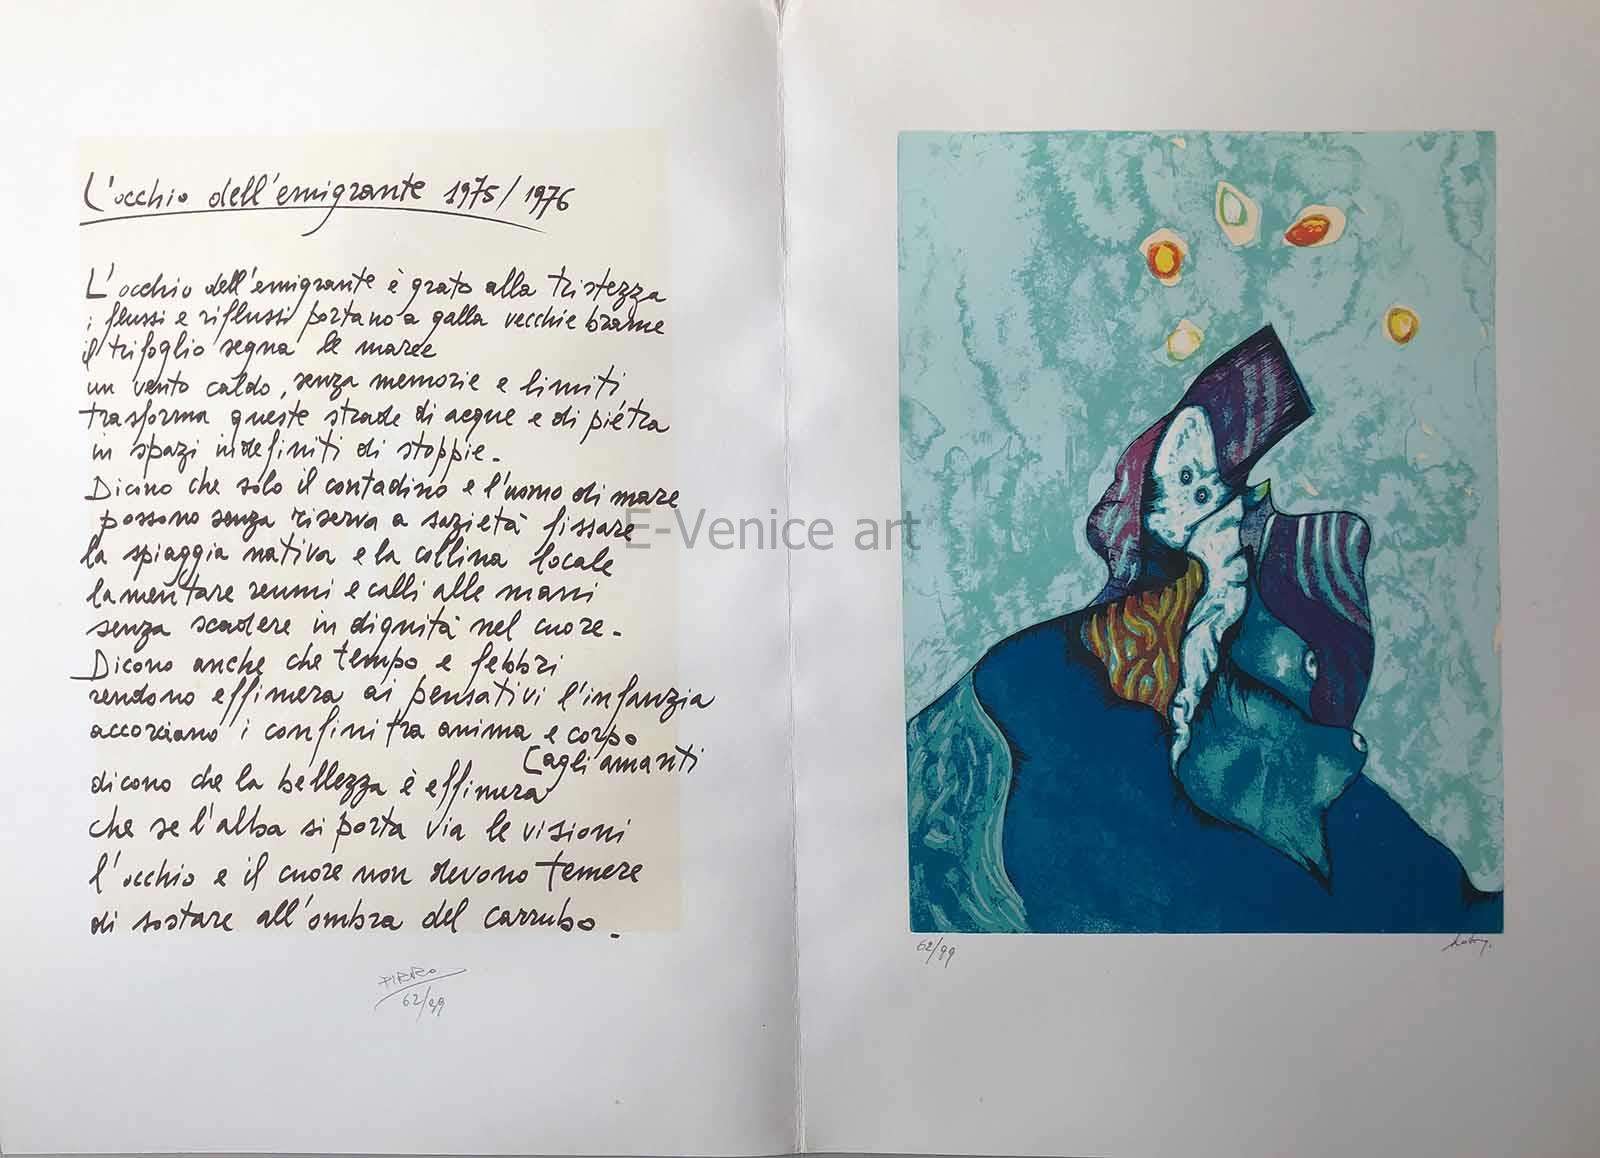 L'occhio dell'emigrante 1975/1976
L'occhio dell'emigrante è grato alla tristezza
i flussi e riflussi portano a galla vecchie brame
il trifoglio segna le maree
un vento caldo, senza memorie e limiti
trasforma queste strade di acque e di piétra
in spazi indefiniti di stoppie.
Dicono che solo il contadino e l'uomo di mare
possono senza riserva a sazietà fissare
la spiaggia nativa e la collina locale
lamentare reumi e calli alle mani
senza scadere in dignità nel cuore.
Dicono anche che tempo e febbri
rendono effimera ai pensativi l'infanzia
accorciano i confini tra anima e corpo
[agli amanti
dicono che la bellezza è effimera
che se l'alba si porta via le visioni
l'occhio e il cuore non devono temere
di sostare all'ombra del carrubo.
62/99
62/99
E-Venice art